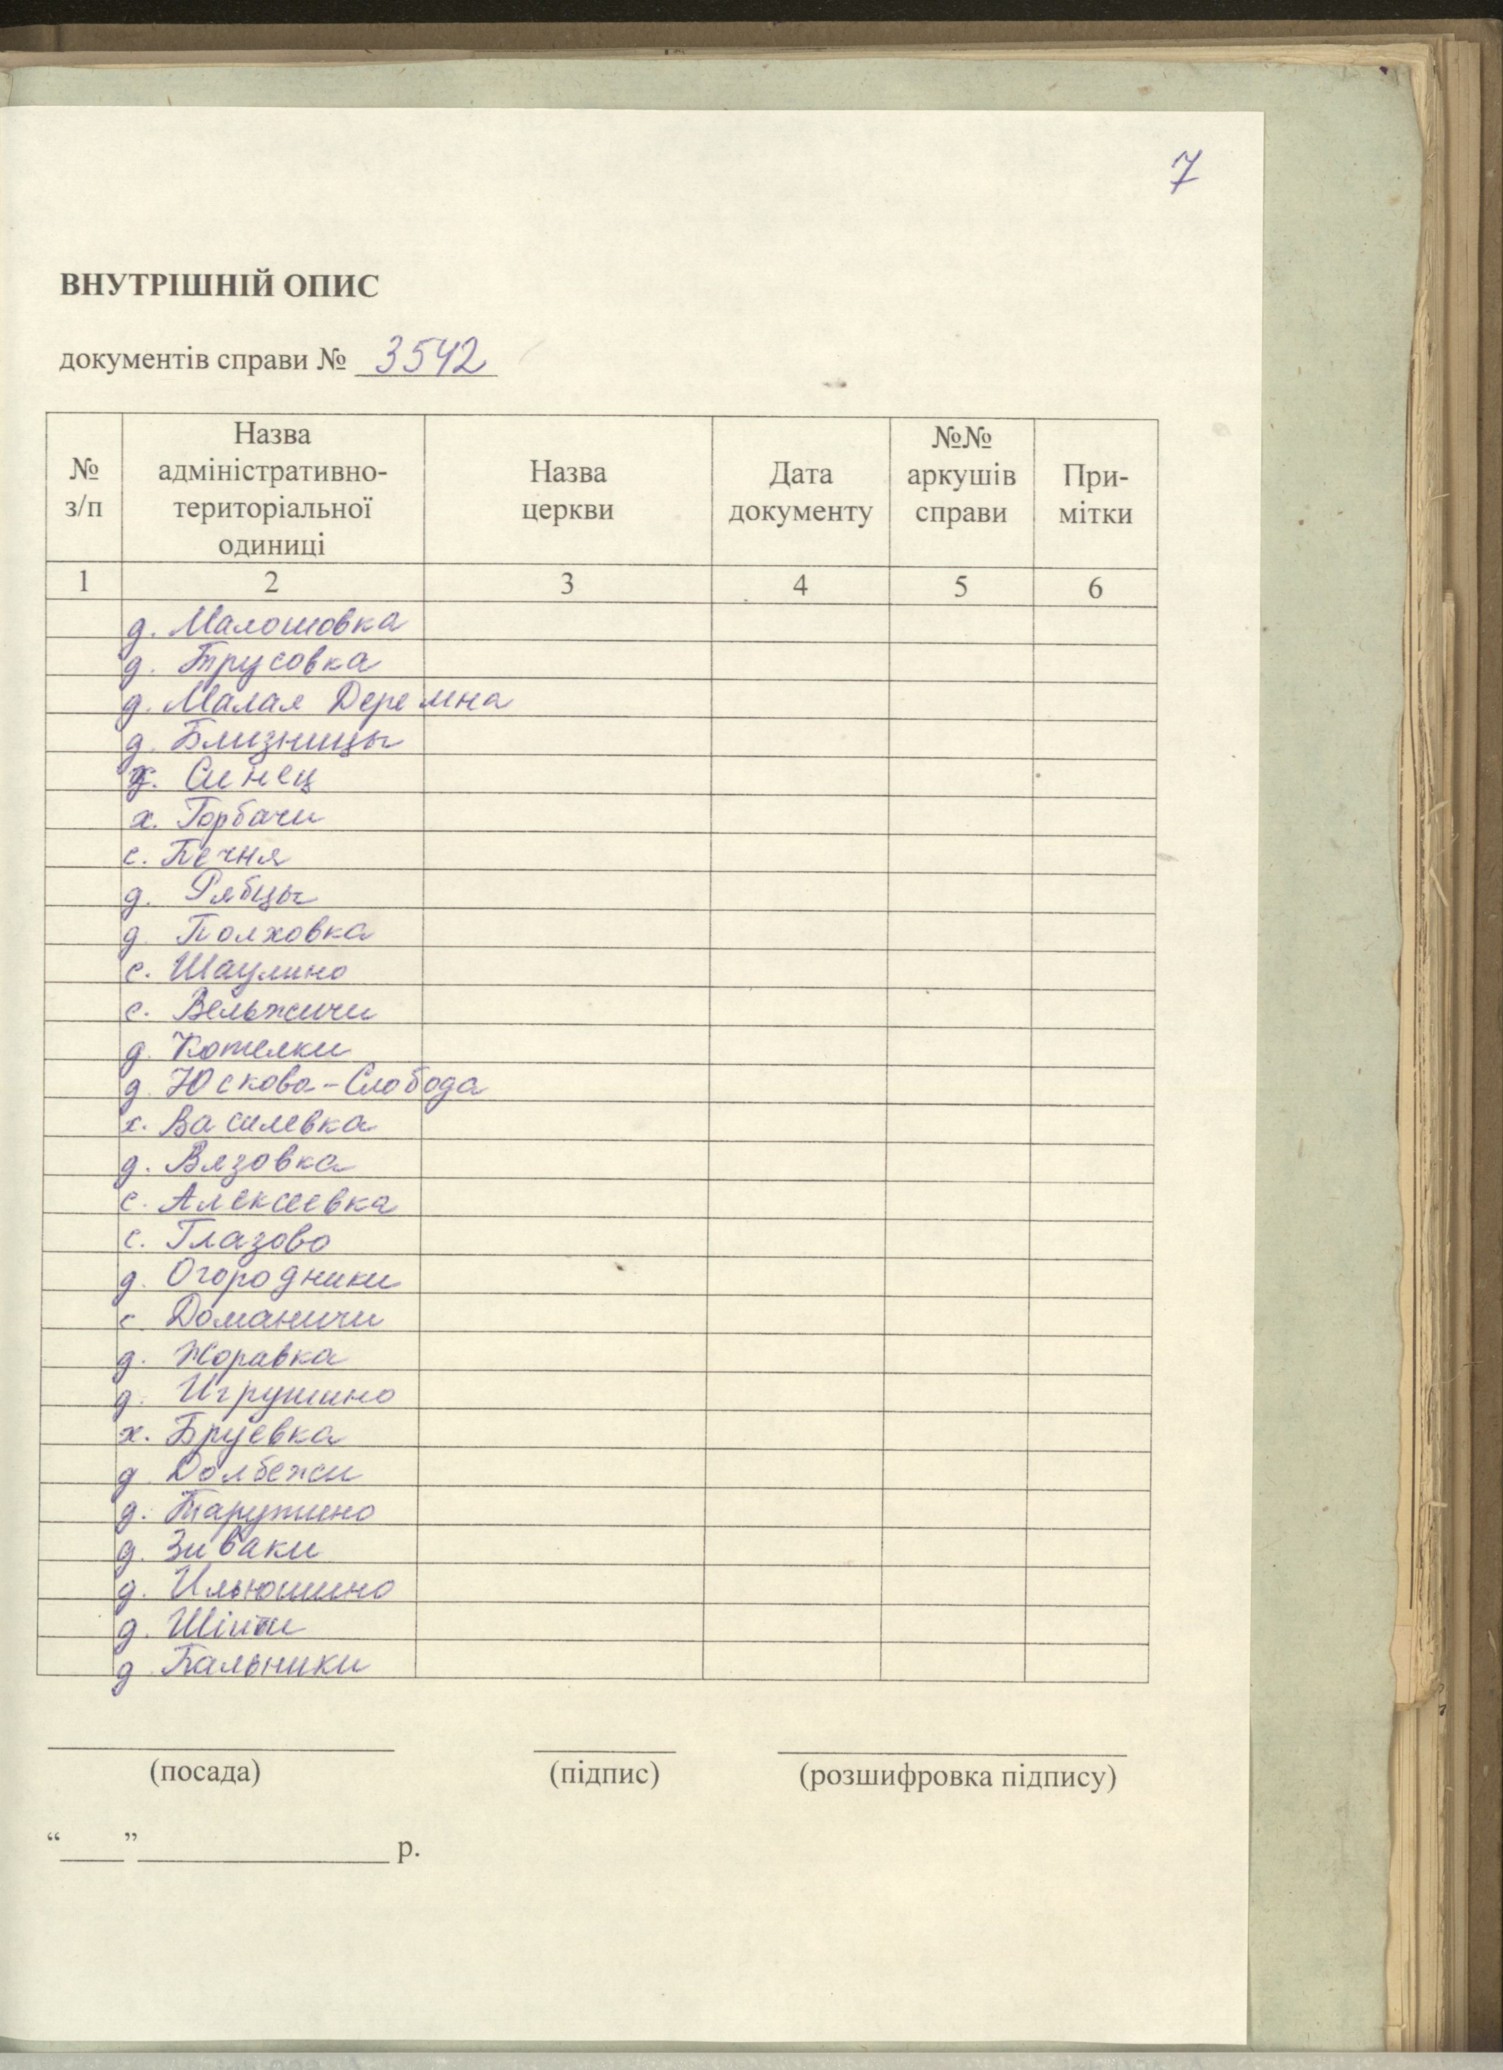 7
ВНУТРІШНІЙ ОПИС
документів справи № 3542
№ з/п
Назва адміністративно-територіальної одиниці
Назва церкви
Дата документу
№№ аркушів справи
При-мітки
1 2 3 4 5 6
д. Малошовка
д. Трусовка
д. Малая Деремна
д. Близницы
х. Синец
х. Горбачи
с. Печня
д. Рябцы
д. Полховка
с. Шаулино
с. Вельжичи
д. Котелки
д. Юскова-Слобода
х. Василевка
д. Вязовка
с. Алексеевка
с. Глазово
д. Огородники
с. Доманичи
д. Жоравка
д. Игрушино
х. Бруевка
д. Долбежи
д. Тарутино
д. Зибаки
д. Ильюшино
д.
д. Пальники
(посада) (підпис) (розшифровка підпису)
“____”________________ р.